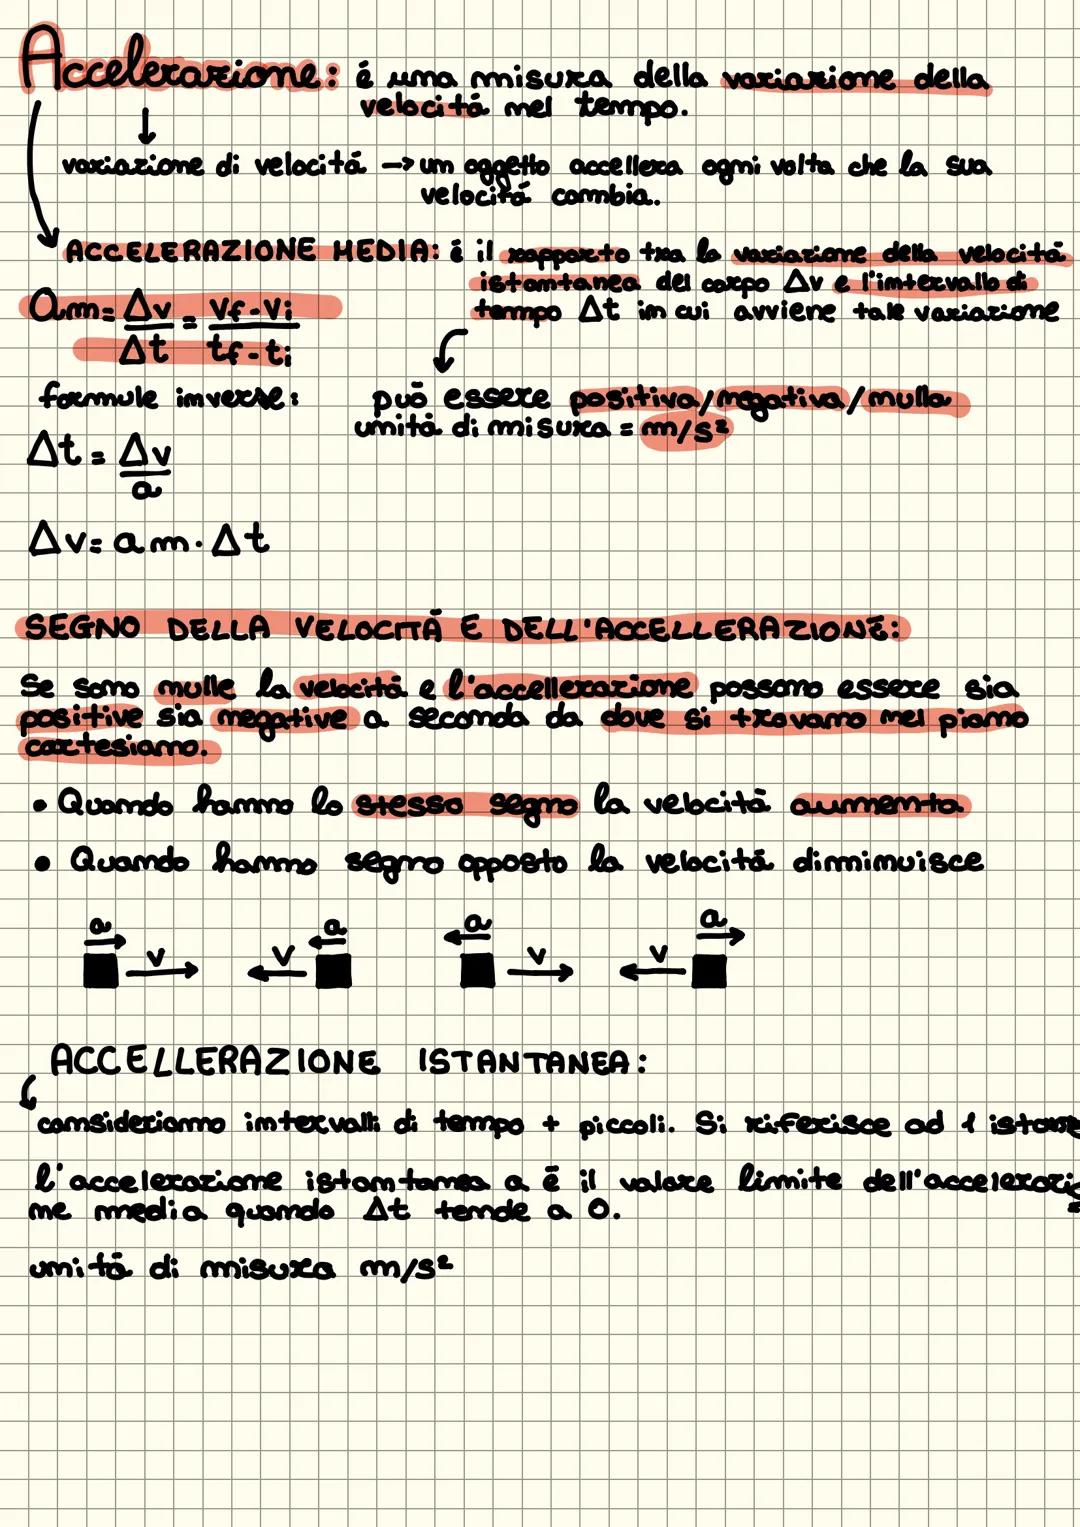 Accelerazione: é una misura della variazione della
velocitá nel tempo.
variazione di velocitá → un oggetto accellera ogni volta che la sua
velocitá cambia.
ACCELERAZIONE MEDIA: é il rapporto tra la variazione della velocitá
istantanea del corpo Δv e l'intervallo di
tempo Δt in cui avviene tale variazione
am = Δv/Δt = vf-vi/tf-ti
formule inverse:
può essere positiva/negativa/nulla
unitá di misura = m/s²
Δt = Δv/a
Δv = am · Δt
SEGNO DELLA VELOCITÁ E DELL'ACCELLERAZIONE:
Se sono nulle la velocitá e l'accellerazione possono essere sia
positive sia negative a seconda da dove si trovano nel piano
cartesiano.
• Quando hanno lo stesso segno la velocitá aumenta
• Quando hanno segno opposto la velocitá diminuisce
a a a a
v v v v
ACCELLERAZIONE ISTANTANEA:
consideriamo intervalli di tempo + piccoli. Si riferisce ad 1
l'accelerazione istantanea a é il valore limite dell'accelerazio
ne media quando Δt tende a 0.
unitá di misura m/s²